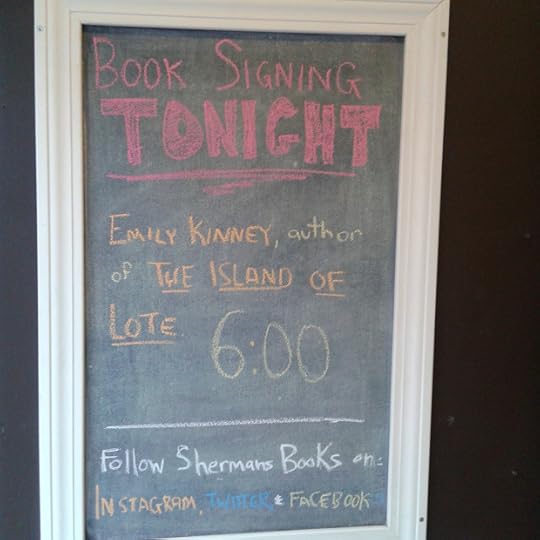 BOOK SIGNING
TONIGHT
EMILY KINNEY, author
of THE ISLAND OF
LOTE
6:00
Follow Shermans Books on:
INSTAGRAM, TWITTER & FACEBOOK